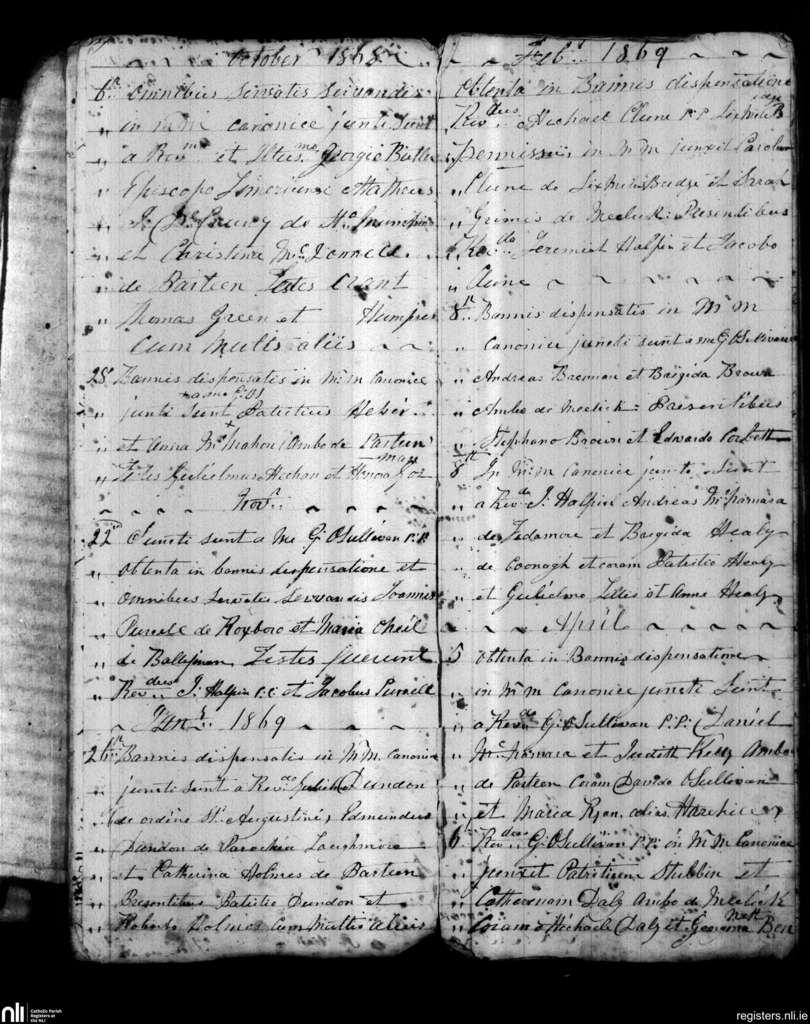 October 1868
6th omnibus servatis servandis
in mm canonice juncti sunt
a Revmo et Illusmo Georgio Butler
Episcopo Limericense Matheus
de Sti Munchin
et Christina McDonnell
de Parteen Testes erant
Thomas Green et Humpres
cum multis aliis
28 Bannis dispensatis in Mm canonice
a me G OS
juncti sunt Patritius Heher
et Anna McMahon Ambo de Parteen
Testes Gulielmus Mechan et Honora
Novr
22d Juncti sunt a me G. OSullivan P.P.
obtenta in bannis dispensatione et
omnibus servatis servandis Joannes
Purcell de Roxboro et Maria Oneil
de Testes fuerunt
Revdus J. Halpin C.C. et Jacobus Purcell
Jany 1869
26th Bannis dispensatis in Mm. canonice
juncti sunt a Revdo Dundon
de ordine St. Augustini, Edmundus
Dundon de Parochia Loughmore
et Catherina Holmes de Parteen
Presentibus Patritio Dundon et
Roberto Holmes cum multis aliis
Feb. 1869
obtenta in Bannis dispensatione
Revdus Michael Clune P.P. Sixmile B
permissu in Mm junxit
Clune de SixmileBridge et Sarah
Grimes de Meelick: Presentibus
Revdo Jeremiah Halpin et Jacobo
Clune
8th Bannis dispensatis in Mm
canonice juncti sunt a me G OSullivan
Andreas Brennan et Brigida Brown
Ambo de Meelick: Presentibus
Stephano Brown et Edwardo Corbett
8th In Mm canonice juncti sunt
a Revdo J. Halpin Andreas McNamara
de Fedamore et Brigida Healy
de Coonagh et coram Patritio Healy
et Gulielmo et Anna Healy
April
5 obtenta in Bannis dispensatione
in Mm canonice juncti sunt
a Revdo G. OSullivan P.P. Daniel
McNamara et Judith Kelly Ambo
de Parteen Coram Davido OSullivan
et Maria Ryan, alias
6th Revdus G. OSullivan P.P. in Mm canonice
junxit Patritium Stubbin et
Catherinam Daly Ambo de Meelick
Coram Michaele Daly et
nli
Catholic Parish
Registers at
the NLI
registers.nli.ie